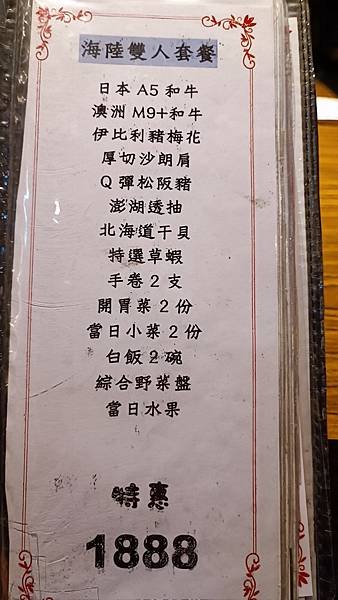 海陸雙人套餐
日本 A5 和牛
澳洲 M9+和牛
伊比利豬梅花
厚切沙朗肩
Q 彈松阪豬
澎湖透抽
北海道干貝
特選草蝦
手卷 2 支
開胃菜 2 份
當日小菜 2 份
白飯 2 碗
綜合野菜盤
當日水果
特惠
1888